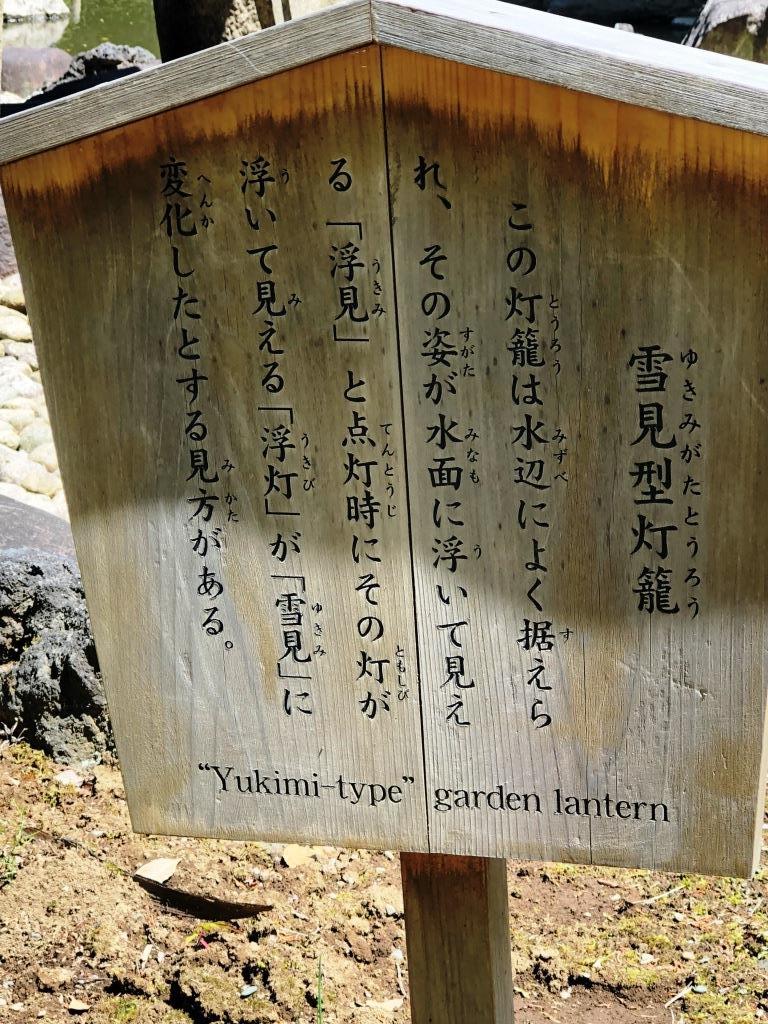 雪見型灯籠
ゆきみがたとうろう
この灯籠は水辺によく据えら
とうろう みずべ す
れ、その姿が水面に浮いて見え
すがた みなも う
る「浮見」と点灯時にその灯が
うきみ てんとうじ ともしび
浮いて見える「浮灯」が「雪見」に
う み うきび ゆきみ
変化したとする見方がある。
へんか みかた
“Yukimi-type” garden lantern